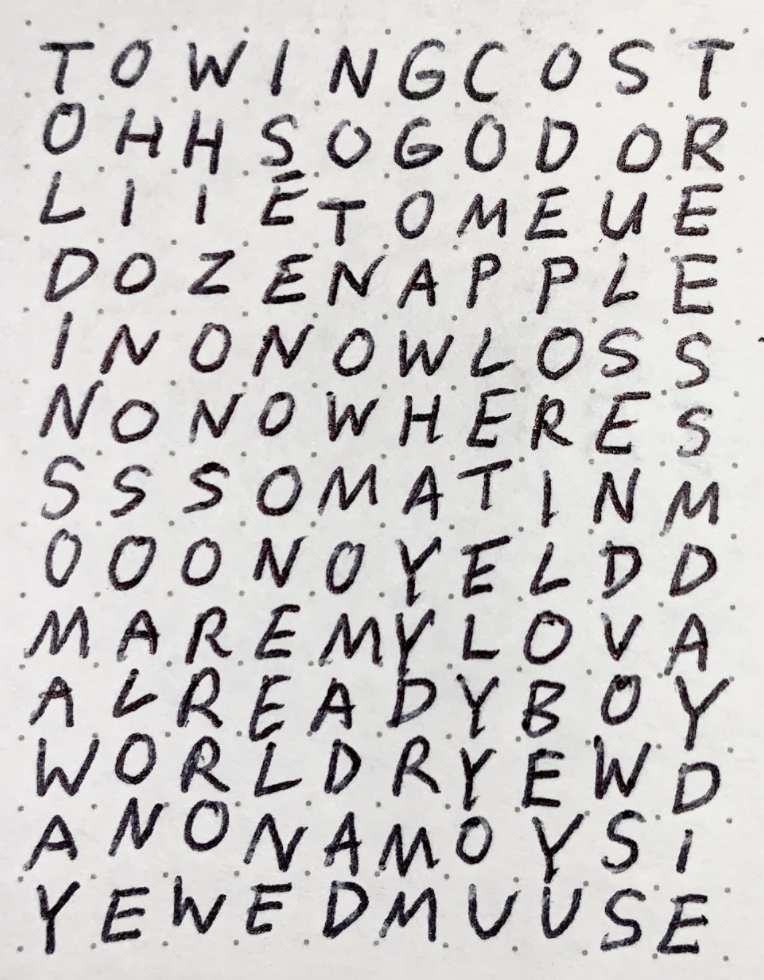 TOWINGCOST
OHHSOGODOR
LIIETOMEUE
DOZENAPPLE
INONOWLOSS
NONOWHERES
SSSOMATINM
OOONOYELDD
MAREMYLOVA
ALREADYBOY
WORLDRYEWD
ANONAMOYSI
YEWEDMUUSE